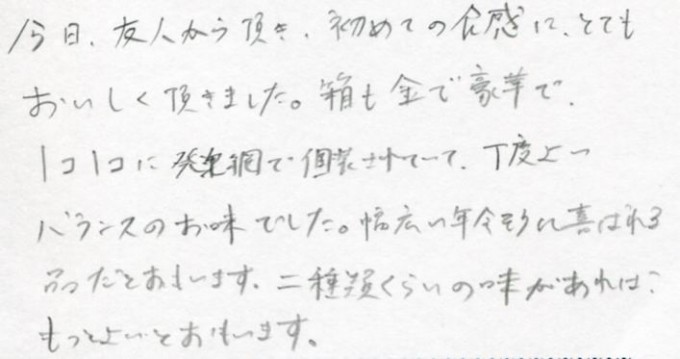 今日、友人から頂き、初めての食感に、とても
おいしく頂きました。箱も金で豪華で、
1コ1コに 個装されていて、丁度よい
バランスのお味でした。幅広い年令層に喜ばれる
品だとおもいます。二種類くらいの味があれば、
もっとよいとおもいます。